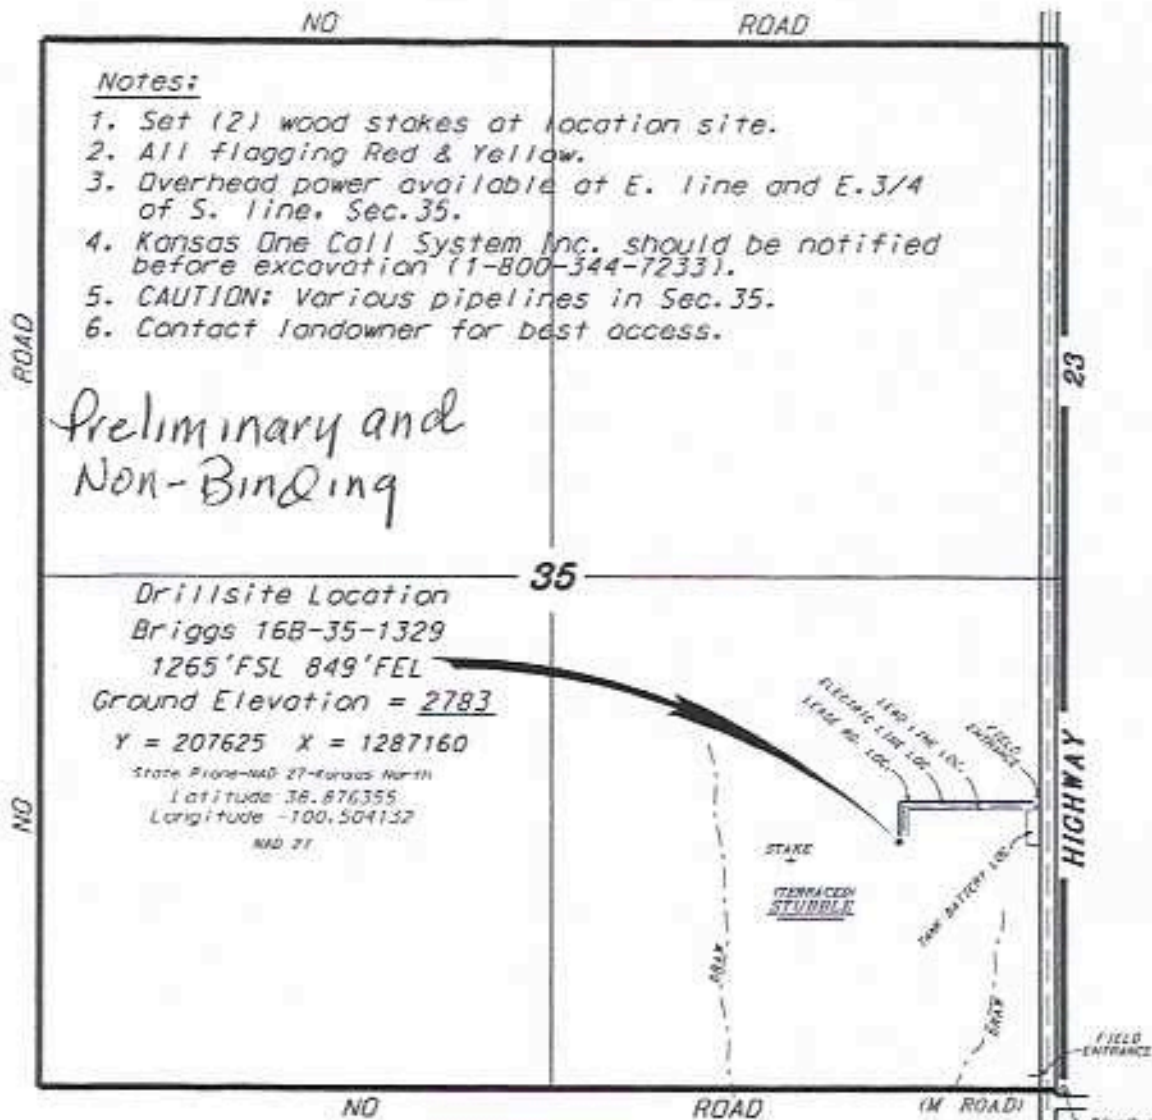 NO ROAD
Notes:
1. Set (2) wood stakes at location site.
2. All flagging Red & Yellow.
3. Overhead power available at E. line and E.3/4
of S. line. Sec.35.
4. Kansas One Call System Inc. should be notified
before excavation (1-800-344-7233).
5. CAUTION: Various pipelines in Sec.35.
6. Contact landowner for best access.
ROAD
23
Preliminary and
Non-Binding
35
Drillsite Location
Briggs 16B-35-1329
1265'FSL 849'FEL
Ground Elevation = 2783
Y = 207625 X = 1287160
State Plane-NAD 27-Kansas North
Latitude 38.876355
Longitude -100.504132
NAD 27
NO
ELECTRIC LINE LOC.
LEAD LINE LOC.
LEASE RD. LOC.
FIELD
ENTRANCE
HIGHWAY
STAKE
(TERRACED)
STUBBLE
TANK BATTERY LOC.
DRAW
DRAW
FIELD
ENTRANCE
NO ROAD (M ROAD)